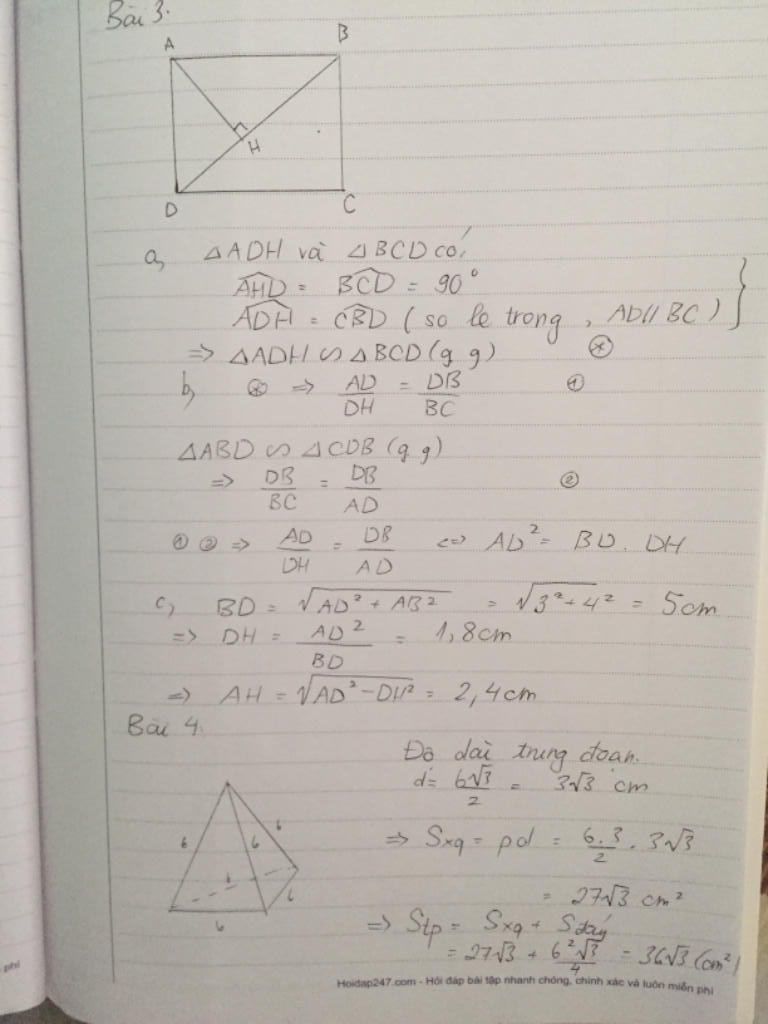 Bài 3.
A B
H
D C
a, △ADH và △BCD có:
AHD = BCD = 90°
ADH = CBD ( so le trong , AD // BC ) }
=> △ADH ∽ △BCD (g g) (*)
b, (*) => AD/DH = DB/BC ①
△ABD ∽ △CDB (g g)
=> DB/BC = DB/AD ②
① ② => AD/DH = DB/AD <=> AD² = BD . DH
c, BD = √(AD² + AB²) = √(3² + 4²) = 5cm
=> DH = AD²/BD = 1,8cm
=> AH = √(AD² - DH²) = 2,4cm
Bài 4.
Độ dài trung đoạn.
d = 6√3/2 = 3√3 cm
6 6 6
6 6
6
=> Sxq = pd = 6.3/2 . 3√3
= 27√3 cm²
=> Stp = Sxq + Sđáy
= 27√3 + 6²√3/4 = 36√3 (cm²)
phí
Hoidap247.com - Hỏi đáp bài tập nhanh chóng, chính xác và luôn miễn phí